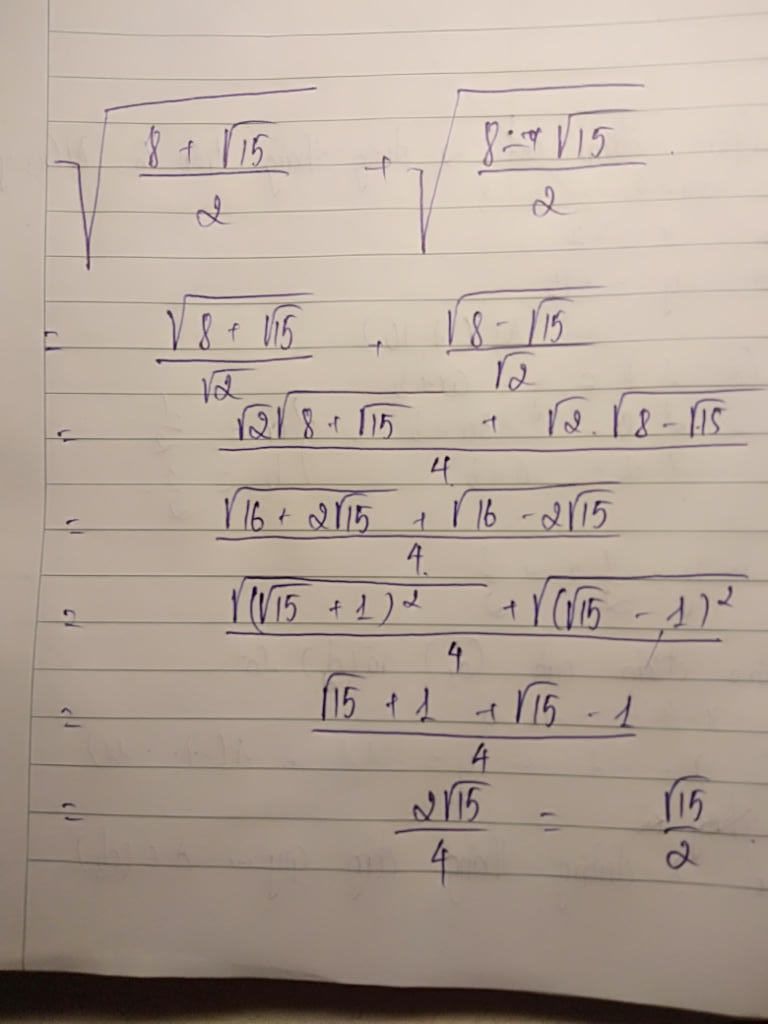 √((8 + √15)/2) + √((8 - √15)/2)
= √(8 + √15)/√2 + √(8 - √15)/√2
= (√2√(8 + √15) + √2.√(8 - √15))/4
= (√(16 + 2√15) + √(16 - 2√15))/4
= (√((√15 + 1)²) + √((√15 - 1)²))/4
= (√15 + 1 + √15 - 1)/4
= 2√15/4 = √15/2